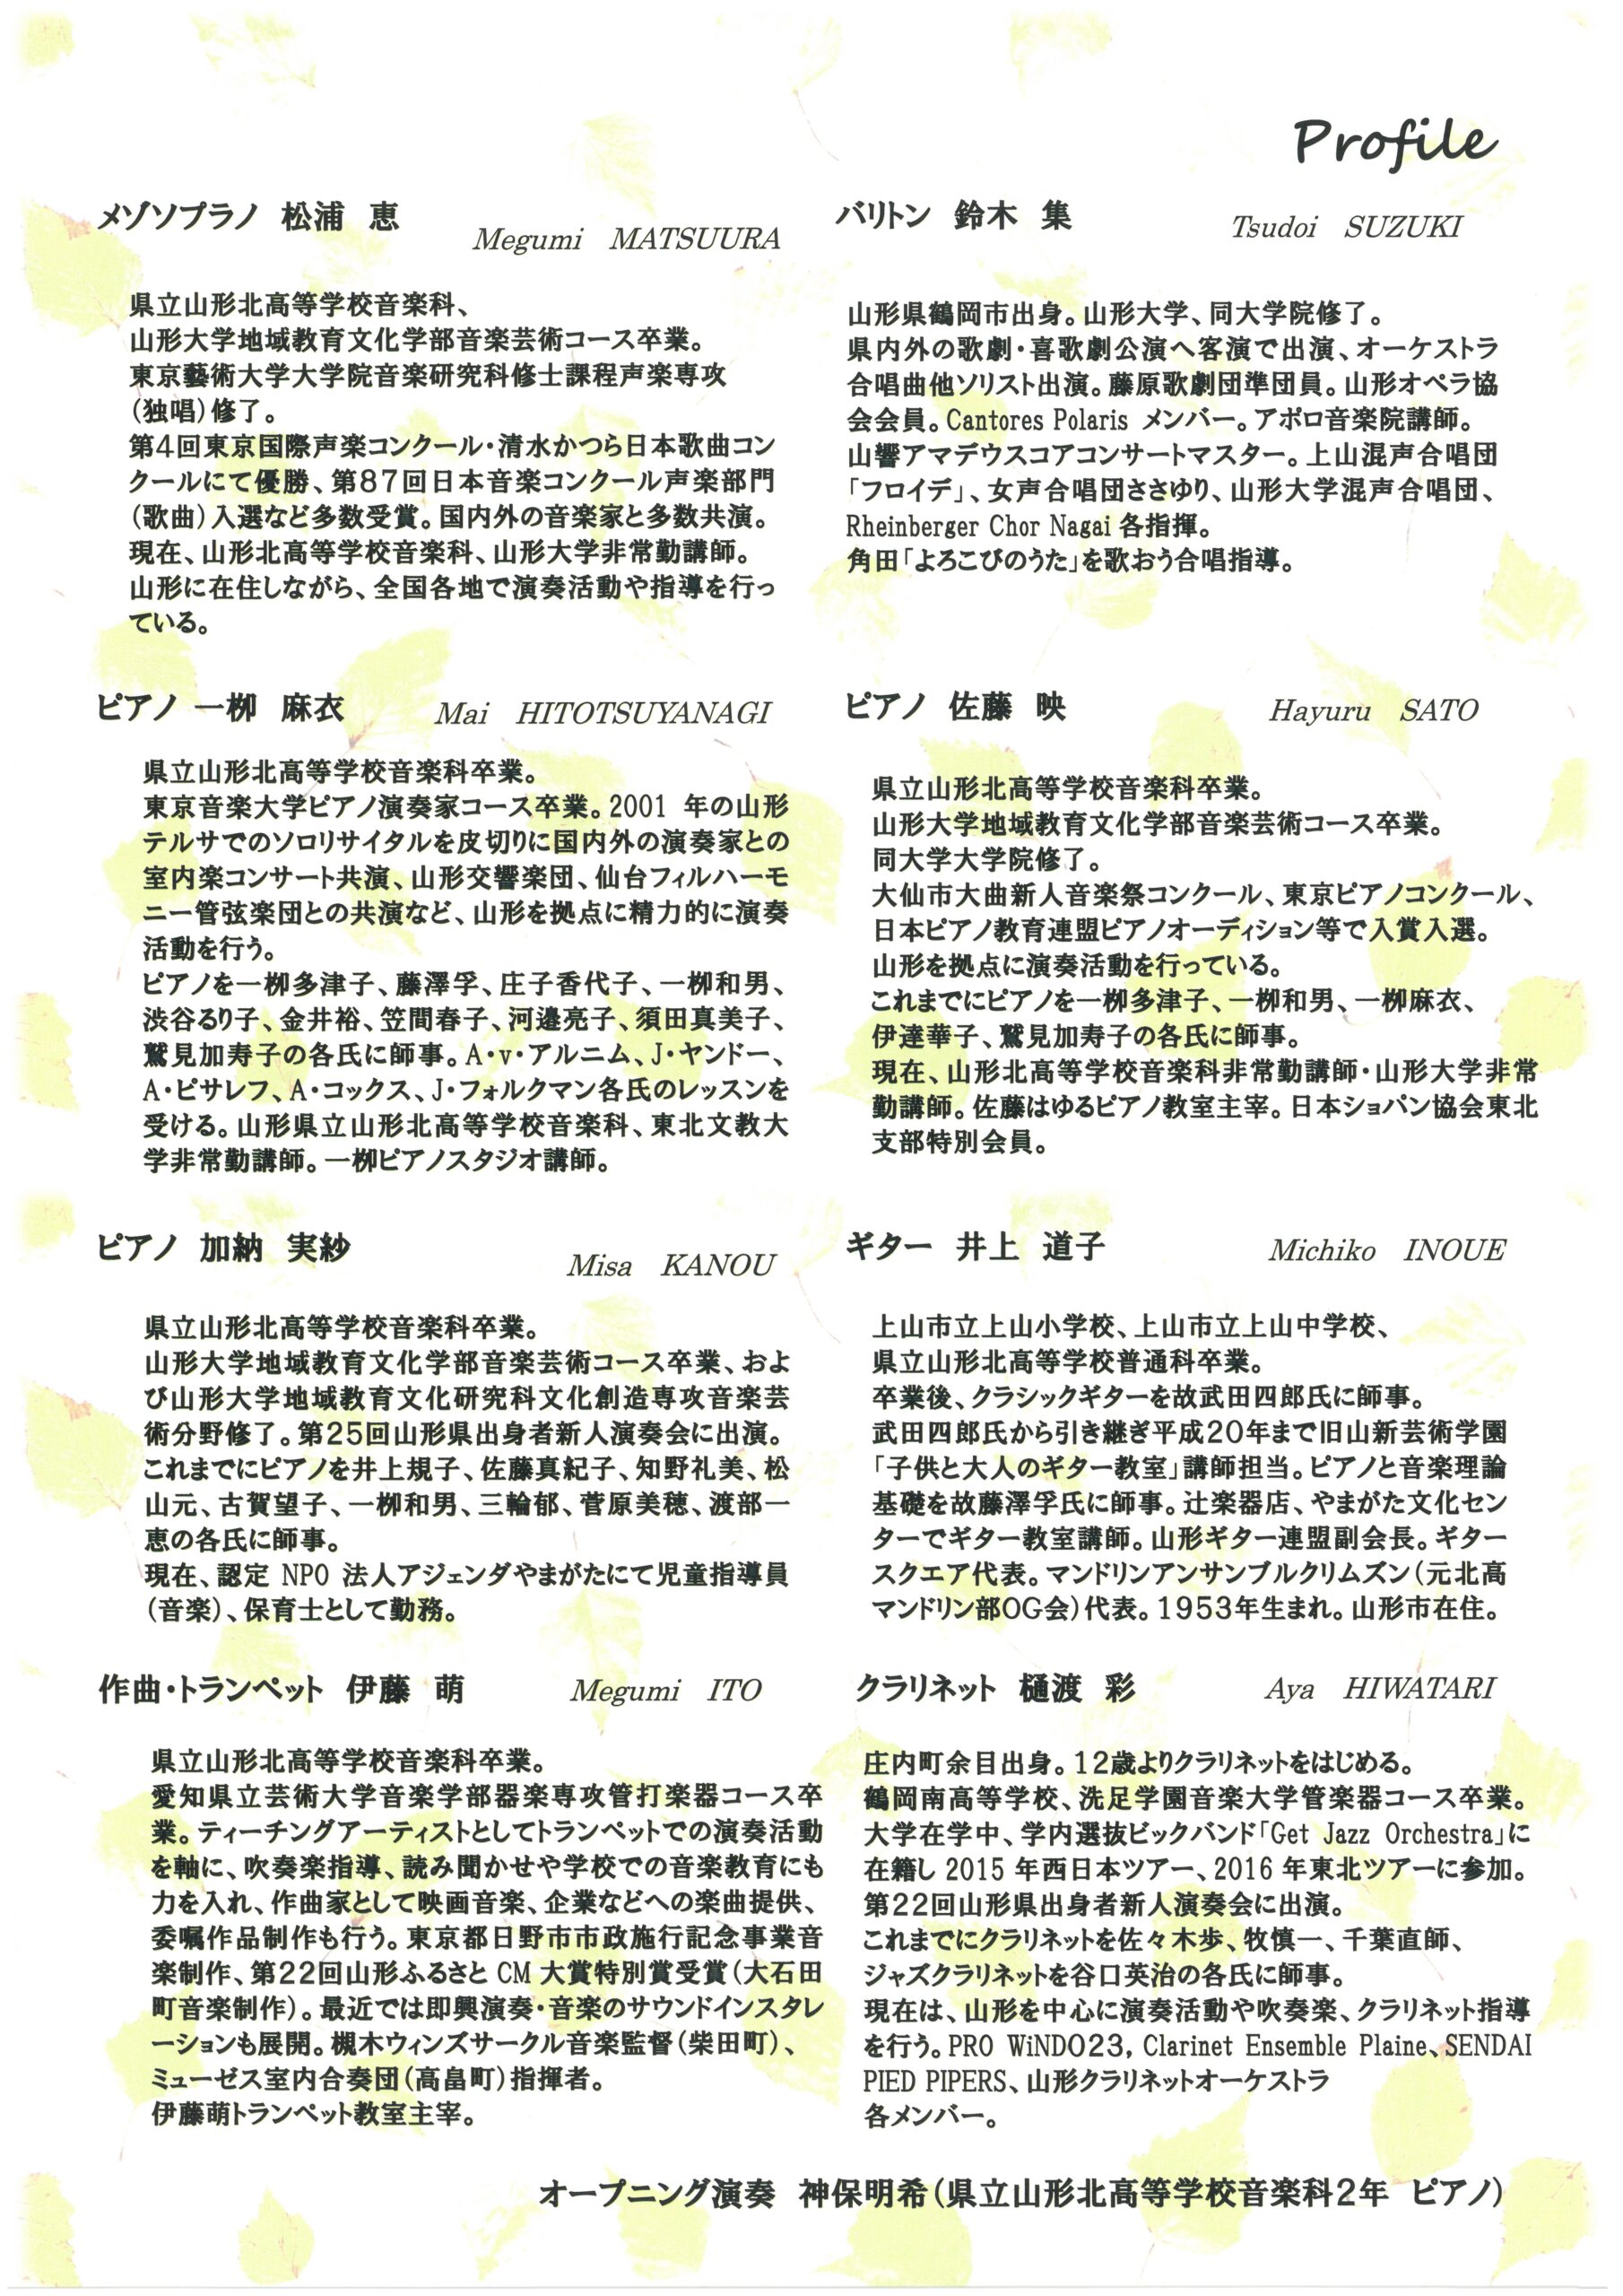 Profile
メゾソプラノ 松浦 恵
Megumi MATSUURA
県立山形北高等学校音楽科、
山形大学地域教育文化学部音楽芸術コース卒業。
東京藝術大学大学院音楽研究科修士課程声楽専攻
(独唱)修了。
第4回東京国際声楽コンクール・清水かつら日本歌曲コン
クールにて優勝、第87回日本音楽コンクール声楽部門
(歌曲)入選など多数受賞。国内外の音楽家と多数共演。
現在、山形北高等学校音楽科、山形大学非常勤講師。
山形に在住しながら、全国各地で演奏活動や指導を行っ
ている。
バリトン 鈴木 集
Tsudoi SUZUKI
山形県鶴岡市出身。山形大学、同大学院修了。
県内外の歌劇・喜歌劇公演へ客演で出演、オーケストラ
合唱曲他ソリスト出演。藤原歌劇団準団員。山形オペラ協
会会員。Cantores Polaris メンバー。アポロ音楽院講師。
山響アマデウスコアコンサートマスター。上山混声合唱団
「フロイデ」、女声合唱団ささゆり、山形大学混声合唱団、
Rheinberger Chor Nagai 各指揮。
角田「よろこびのうた」を歌おう合唱指導。
ピアノ 一栁 麻衣
Mai HITOTSUYANAGI
県立山形北高等学校音楽科卒業。
東京音楽大学ピアノ演奏家コース卒業。2001 年の山形
テルサでのソロリサイタルを皮切りに国内外の演奏家との
室内楽コンサート共演、山形交響楽団、仙台フィルハーモ
ニー管弦楽団との共演など、山形を拠点に精力的に演奏
活動を行う。
ピアノを一栁多津子、藤澤孚、庄子香代子、一栁和男、
渋谷るり子、金井裕、笠間春子、河邉亮子、須田真美子、
鷲見加寿子の各氏に師事。A・v・アルニム、J・ヤンドー、
A・ピサレフ、A・コックス、J・フォルクマン各氏のレッスンを
受ける。山形県立山形北高等学校音楽科、東北文教大
学非常勤講師。一栁ピアノスタジオ講師。
ピアノ 佐藤 映
Hayuru SATO
県立山形北高等学校音楽科卒業。
山形大学地域教育文化学部音楽芸術コース卒業。
同大学大学院修了。
大仙市大曲新人音楽祭コンクール、東京ピアノコンクール、
日本ピアノ教育連盟ピアノオーディション等で入賞入選。
山形を拠点に演奏活動を行っている。
これまでにピアノを一栁多津子、一栁和男、一栁麻衣、
伊達華子、鷲見加寿子の各氏に師事。
現在、山形北高等学校音楽科非常勤講師・山形大学非常
勤講師。佐藤はゆるピアノ教室主宰。日本ショパン協会東北
支部特別会員。
ピアノ 加納 実紗
Misa KANOU
県立山形北高等学校音楽科卒業。
山形大学地域教育文化学部音楽芸術コース卒業、およ
び山形大学地域教育文化研究科文化創造専攻音楽芸
術分野修了。第25回山形県出身者新人演奏会に出演。
これまでにピアノを井上規子、佐藤真紀子、知野礼美、松
山元、古賀望子、一栁和男、三輪郁、菅原美穂、渡部一
恵の各氏に師事。
現在、認定 NPO 法人アジェンダやまがたにて児童指導員
(音楽)、保育士として勤務。
ギター 井上 道子
Michiko INOUE
上山市立上山小学校、上山市立上山中学校、
県立山形北高等学校普通科卒業。
卒業後、クラシックギターを故武田四郎氏に師事。
武田四郎氏から引き継ぎ平成20年まで旧山新芸術学園
「子供と大人のギター教室」講師担当。ピアノと音楽理論
基礎を故藤澤孚氏に師事。辻楽器店、やまがた文化セン
ターでギター教室講師。山形ギター連盟副会長。ギター
スクエア代表。マンドリンアンサンブルクリムズン(元北高
マンドリン部OG会)代表。1953年生まれ。山形市在住。
作曲・トランペット 伊藤 萌
Megumi ITO
県立山形北高等学校音楽科卒業。
愛知県立芸術大学音楽学部器楽専攻管打楽器コース卒
業。ティーチングアーティストとしてトランペットでの演奏活動
を軸に、吹奏楽指導、読み聞かせや学校での音楽教育にも
力を入れ、作曲家として映画音楽、企業などへの楽曲提供、
委嘱作品制作も行う。東京都日野市市政施行記念事業音
楽制作、第22回山形ふるさと CM 大賞特別賞受賞(大石田
町音楽制作)。最近では即興演奏・音楽のサウンドインスタレ
ーションも展開。槻木ウィンズサークル音楽監督(柴田町)、
ミューゼス室内合奏団(高畠町)指揮者。
伊藤萌トランペット教室主宰。
クラリネット 樋渡 彩
Aya HIWATARI
庄内町余目出身。12歳よりクラリネットをはじめる。
鶴岡南高等学校、洗足学園音楽大学管楽器コース卒業。
大学在学中、学内選抜ビックバンド「Get Jazz Orchestra」に
在籍し 2015 年西日本ツアー、2016 年東北ツアーに参加。
第22回山形県出身者新人演奏会に出演。
これまでにクラリネットを佐々木歩、牧慎一、千葉直師、
ジャズクラリネットを谷口英治の各氏に師事。
現在は、山形を中心に演奏活動や吹奏楽、クラリネット指導
を行う。PRO WiNDO23, Clarinet Ensemble Plaine、SENDAI
PIED PIPERS、山形クラリネットオーケストラ
各メンバー。
オープニング演奏 神保明希(県立山形北高等学校音楽科2年 ピアノ)